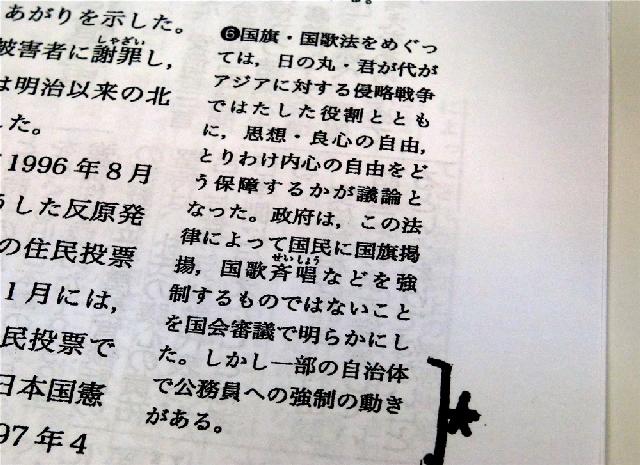 あがりを示した。
被害者に謝罪し，
は明治以来の北
した。
1996年8月
した反原発
の住民投票
1月には，
民投票で
日本国憲
97年4
❻国旗・国歌法をめぐっ
ては，日の丸・君が代が
アジアに対する侵略戦争
ではたした役割ととも
に，思想・良心の自由，
とりわけ内心の自由をど
う保障するかが議論と
なった。政府は，この法
律によって国民に国旗掲
揚，国歌斉唱などを強
制するものではないこと
を国会審議で明らかにし
た。しかし一部の自治体
で公務員への強制の動き
がある。